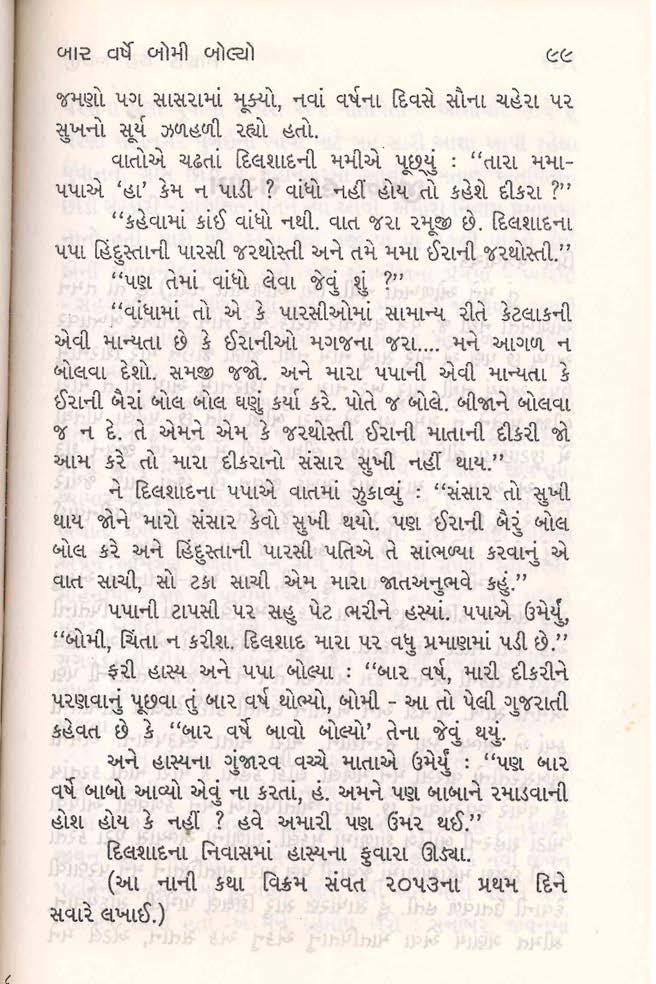 બાર વર્ષે બોમી બોલ્યો ૯૯
જમણો પગ સાસરામાં મૂક્યો, નવાં વર્ષના દિવસે સૌના ચહેરા પર
સુખનો સૂર્ય ઝળહળી રહ્યો હતો.
વાતોએ ચઢતાં દિલશાદની મમીએ પૂછ્યું : ‘‘તારા મમા-
પપાએ ‘હા’ કેમ ન પાડી ? વાંધો નહીં હોય તો કહેશે દીકરા ?’’
‘‘કહેવામાં કાંઈ વાંધો નથી. વાત જરા રમૂજી છે. દિલશાદના
પપા હિંદુસ્તાની પારસી જરથોસ્તી અને તમે મમા ઈરાની જરથોસ્તી.’’
‘‘પણ તેમાં વાંધો લેવા જેવું શું ?’’
‘‘વાંધામાં તો એ કે પારસીઓમાં સામાન્ય રીતે કેટલાકની
એવી માન્યતા છે કે ઈરાનીઓ મગજના જરા.... મને આગળ ન
બોલવા દેશો. સમજી જજો. અને મારા પપાની એવી માન્યતા કે
ઈરાની બૈરાં બોલ બોલ ઘણું કર્યા કરે. પોતે જ બોલે. બીજાને બોલવા
જ ન દે. તે એમને એમ કે જરથોસ્તી ઈરાની માતાની દીકરી જો
આમ કરે તો મારા દીકરાનો સંસાર સુખી નહીં થાય.’’
ને દિલશાદના પપાએ વાતમાં ઝુકાવ્યું : ‘‘સંસાર તો સુખી
થાય જોને મારો સંસાર કેવો સુખી થયો. પણ ઈરાની બૈરું બોલ
બોલ કરે અને હિંદુસ્તાની પારસી પતિએ તે સાંભળ્યા કરવાનું એ
વાત સાચી, સો ટકા સાચી એમ મારા જાતઅનુભવે કહું.’’
પપાની ટાપસી પર સહુ પેટ ભરીને હસ્યાં. પપાએ ઉમેર્યું,
‘‘બોમી, ચિંતા ન કરીશ. દિલશાદ મારા પર વધુ પ્રમાણમાં પડી છે.’’
ફરી હાસ્ય અને પપા બોલ્યા : ‘‘બાર વર્ષ, મારી દીકરીને
પરણવાનું પૂછવા તું બાર વર્ષ થોભ્યો, બોમી - આ તો પેલી ગુજરાતી
કહેવત છે કે ‘‘બાર વર્ષે બાવો બોલ્યો’ તેના જેવું થયું.
અને હાસ્યના ગુંજારવ વચ્ચે માતાએ ઉમેર્યું : ‘‘પણ બાર
વર્ષે બાબો આવ્યો એવું ના કરતા, હં. અમને પણ બાબાને રમાડવાની
હોશ હોય કે નહીં ? હવે અમારી પણ ઉમર થઈ.’’
દિલશાદના નિવાસમાં હાસ્યના ફુવારા ઊડ્યા.
(આ નાની કથા વિક્રમ સંવત ૨૦૫૩ના પ્રથમ દિને
સવારે લખાઈ.)